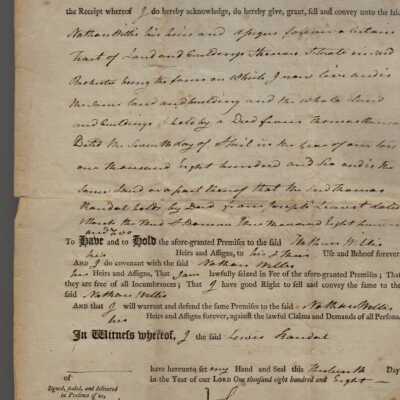 the Receipt whereof I do hereby acknowledge, do hereby give, grant, sell and convey unto the said
Nathan Willis his heirs and assigns forever a certain
tract of Land and buildings thereon Situate in said
Rochester being the same on which I now live and is
the same land and building and the whole Land
and buildings I held by a Deed from Thomas
Dated the Seventh day of April in the year of our lord
one thousand Eight hundred and Six and is the
same Land or a part thereof that the said Thomas
Randal holds by Deed from Joseph dated
March the Eighteen hundred
and two
To Have and to Hold the afore-granted Premises to the said Nathan Willis
his Heirs and Assigns, to his & their Use and Behoof forever
AND I do covenant with the said Nathan Willis
his Heirs and Assigns, That I am lawfully seized in Fee of the afore-granted Premises; That
they are free of all Incumbrances; That I have good Right to sell and convey the same to the
said Nathan Willis
AND that I will warrant and defend the same Premises to the said Nathan Willis
his Heirs and Assigns forever, against the lawful Claims and Demands of all Persons
In Witness whereof, I the said Lewis Randal
have hereunto set my Hand and Seal this Day
of in the Year of our LORD One thousand eight hundred and Eight
Signed, Sealed, and delivered
in Presence of us,